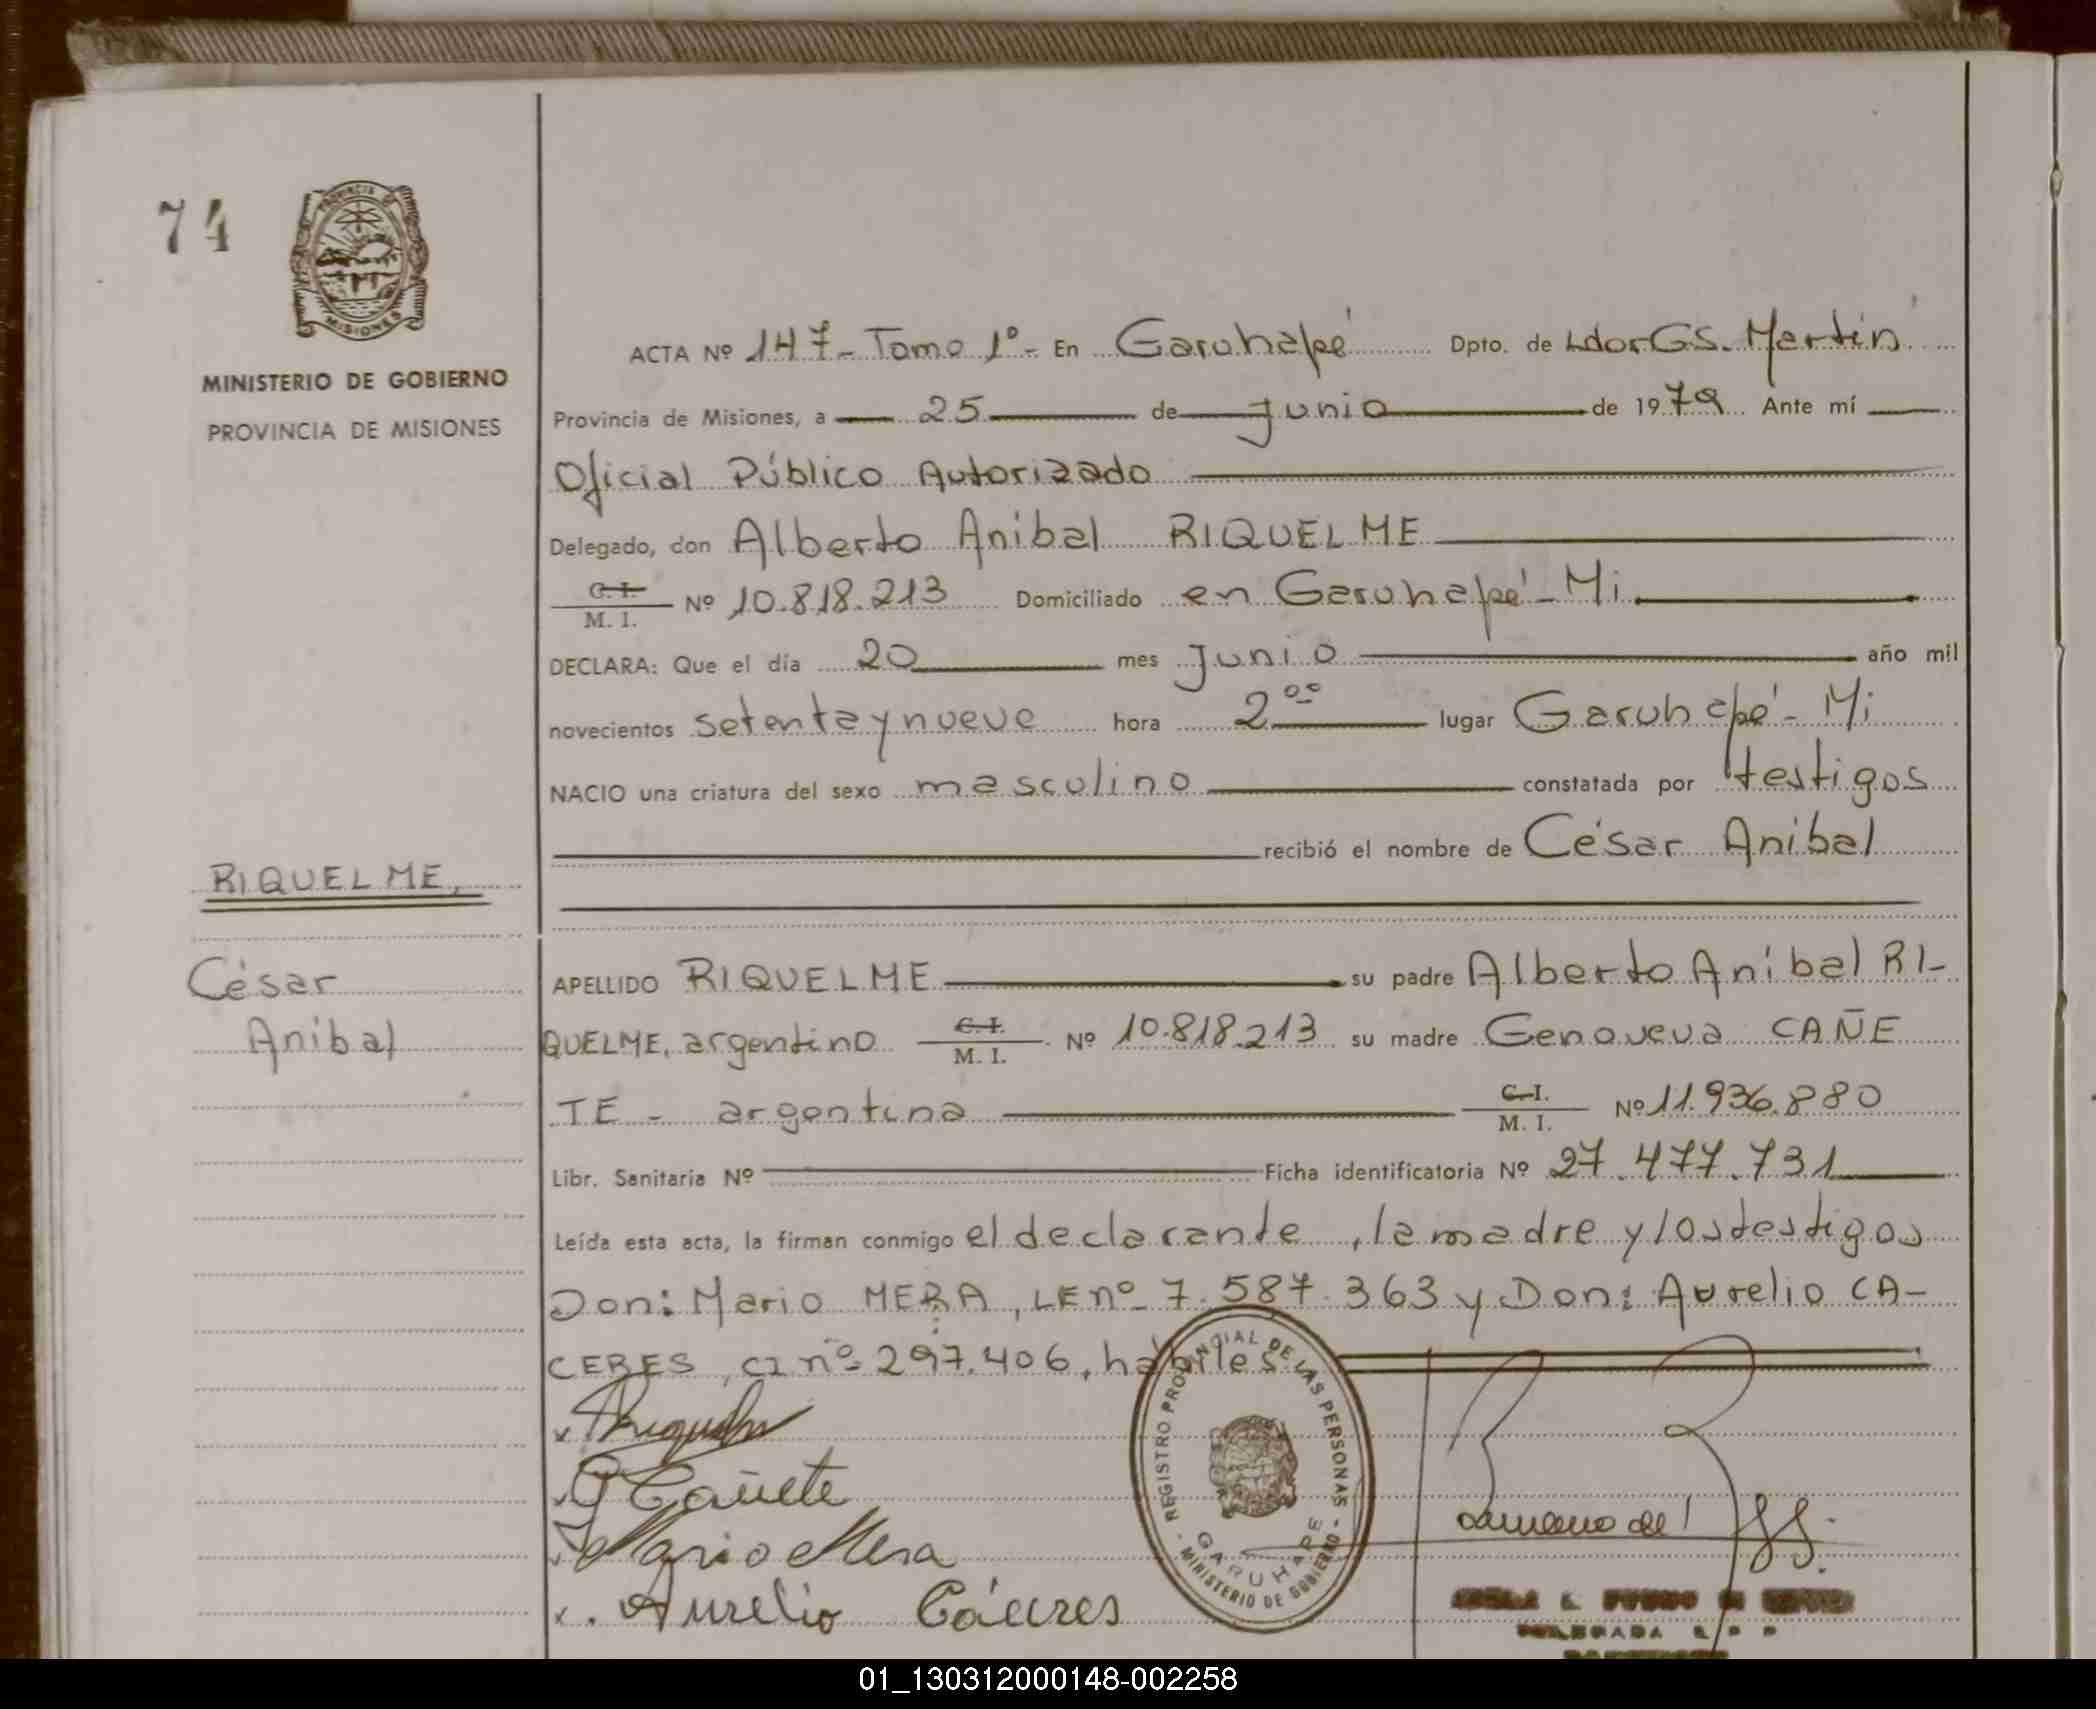 74
PROVINCIA DE
MISIONES
MINISTERIO DE GOBIERNO
PROVINCIA DE MISIONES
ACTA Nº 147- Tomo 1º- En Garuhapé Dpto. de LdorGS. Martín
Provincia de Misiones, a 25 de Junio de 1979 Ante mí
Oficial Público Autorizado
Delegado, don Alberto Anibal RIQUELME
C. I.
M. I. Nº 10.818.213 Domiciliado en Garuhapé- Mi
DECLARA: Que el día 20 mes Junio año mil
novecientos setenta y nueve hora 2ºº lugar Garuhapé- Mi
NACIO una criatura del sexo masculino constatada por testigos
recibió el nombre de César Anibal
RIQUELME,
César
Anibal
APELLIDO RIQUELME su padre Alberto Anibal RI-
QUELME, argentino C. I. M. I. Nº 10.818.213 su madre Genoveva CAÑE
TE - argentina C. I. M. I. Nº 11.936.880
Libr. Sanitaria Nº Ficha identificatoria Nº 27.477.731
Leída esta acta, la firman conmigo el declarante, la madre y los testigos
Don: Mario MERA, LE nº 7.587.363 y Don: Aurelio CA-
CERES, CI nº 297.406, hábiles
x Riquelme
x G Cañete
x Mario Mera
x. Aurelio Cáceres
REGISTRO PROVINCIAL DE LAS PERSONAS
GARUHAPE
MINISTERIO DE GOBIERNO
DELEGADA R P P
01_130312000148-002258